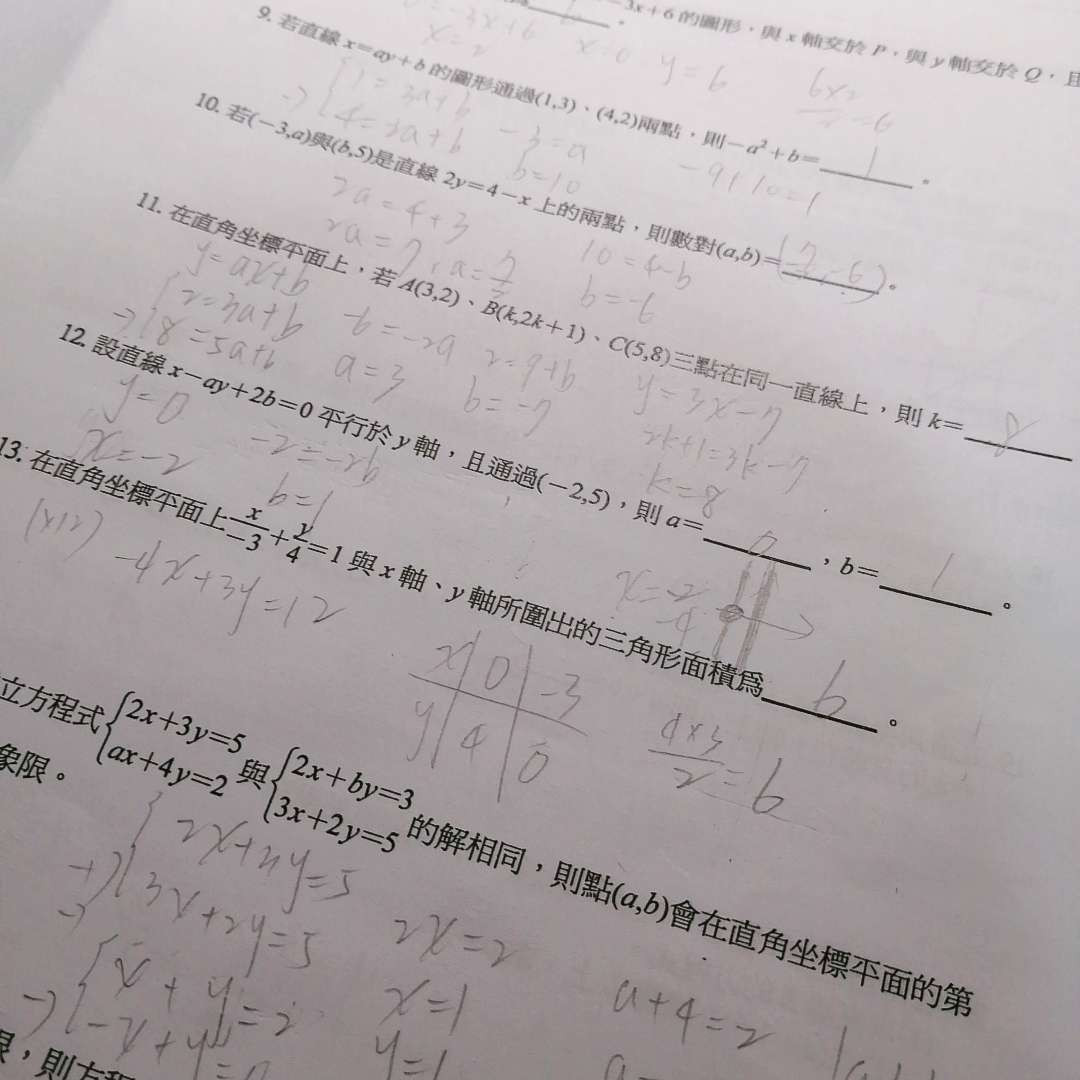 3x+6 的圖形,與 x 軸交於 P,與 y 軸交於 Q,且
x=2 x=0 y=6
9. 若直線 x=ay+b 的圖形通過(1,3)、(4,2)兩點,則-a²+b= 1 。
1=3a+b
-3=a
b=10
-9+10=1
10. 若(-3,a)與(b,5)是直線 2y=4-x 上的兩點,則數對(a,b)=(7/2,-6)。
2a=4+3
2a=7, a=7/2
10=4-b
b=-6
11. 在直角坐標平面上,若 A(3,2)、B(k,2k+1)、C(5,8)三點在同一直線上,則 k= 8
y=ax+b
2=3a+b
8=5a+b
-6=-2a
a=3
2=9+b
b=-7
y=3x-7
2k+1=3k-7
k=8
12. 設直線 x-ay+2b=0 平行於 y 軸,且通過(-2,5),則 a= 0 ,b= 1 。
y=0
x=-2
-2=-2b
b=1
x=-2
13. 在直角坐標平面上 x/-3 + y/4 =1 與 x 軸、y 軸所圍出的三角形面積為 6 。
(x12) -4x+3y=12
x 0 -3
y 4 0
4×3/2=6
立方程式{2x+3y=5 ax+4y=2 與{2x+by=3 3x+2y=5 的解相同,則點(a,b)會在直角坐標平面的第
象限。
3x+2y=5
2x=2
x+y=2
x=1
a+4=2
-x+y=0
y=1
,則方程